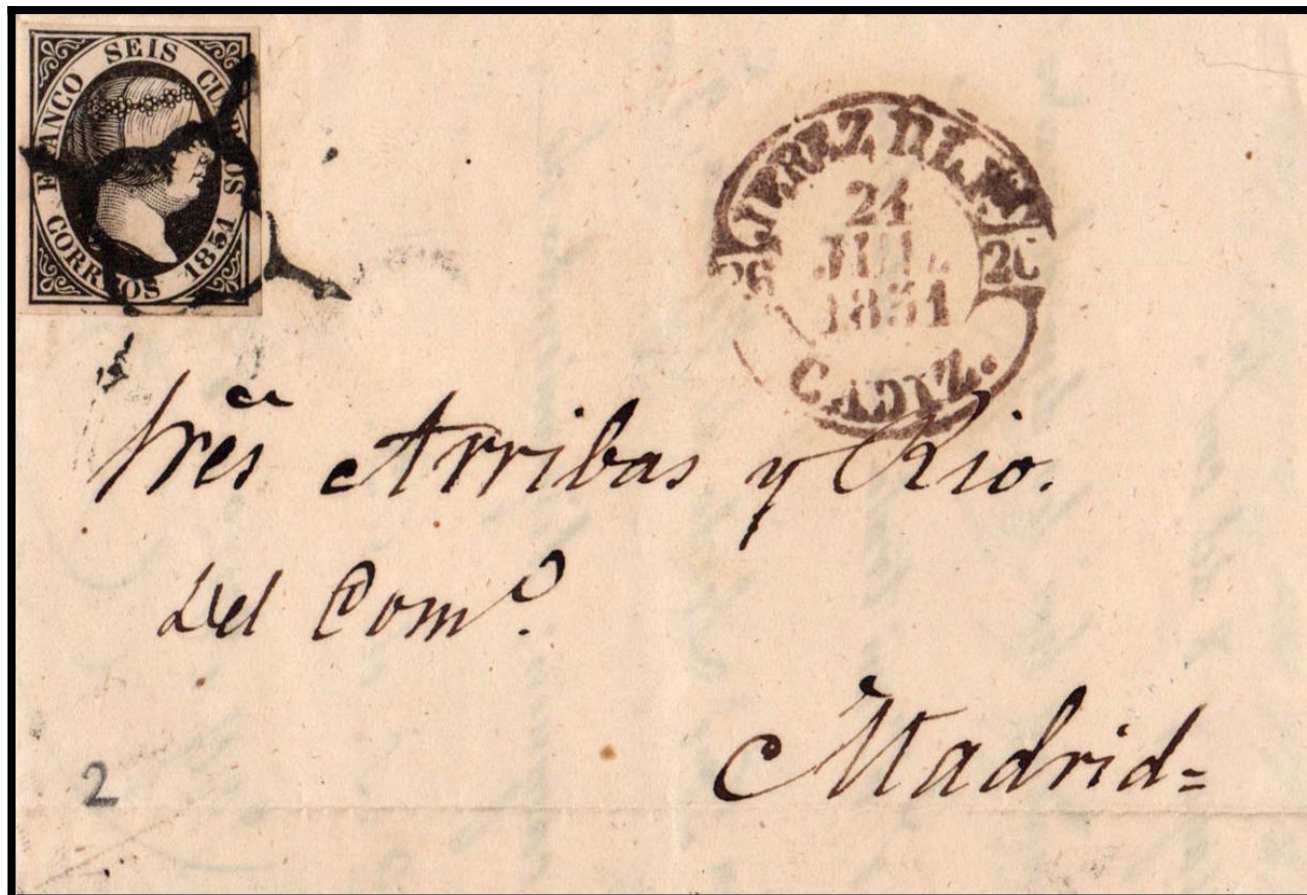 FRANCO SEIS CUARTOS
CORREOS 1851
JEREZ DE LA
24
JUL.
1851
26 26
CADIZ.
Sres Arribas y Rio.
Del Comº.
Madrid=
2